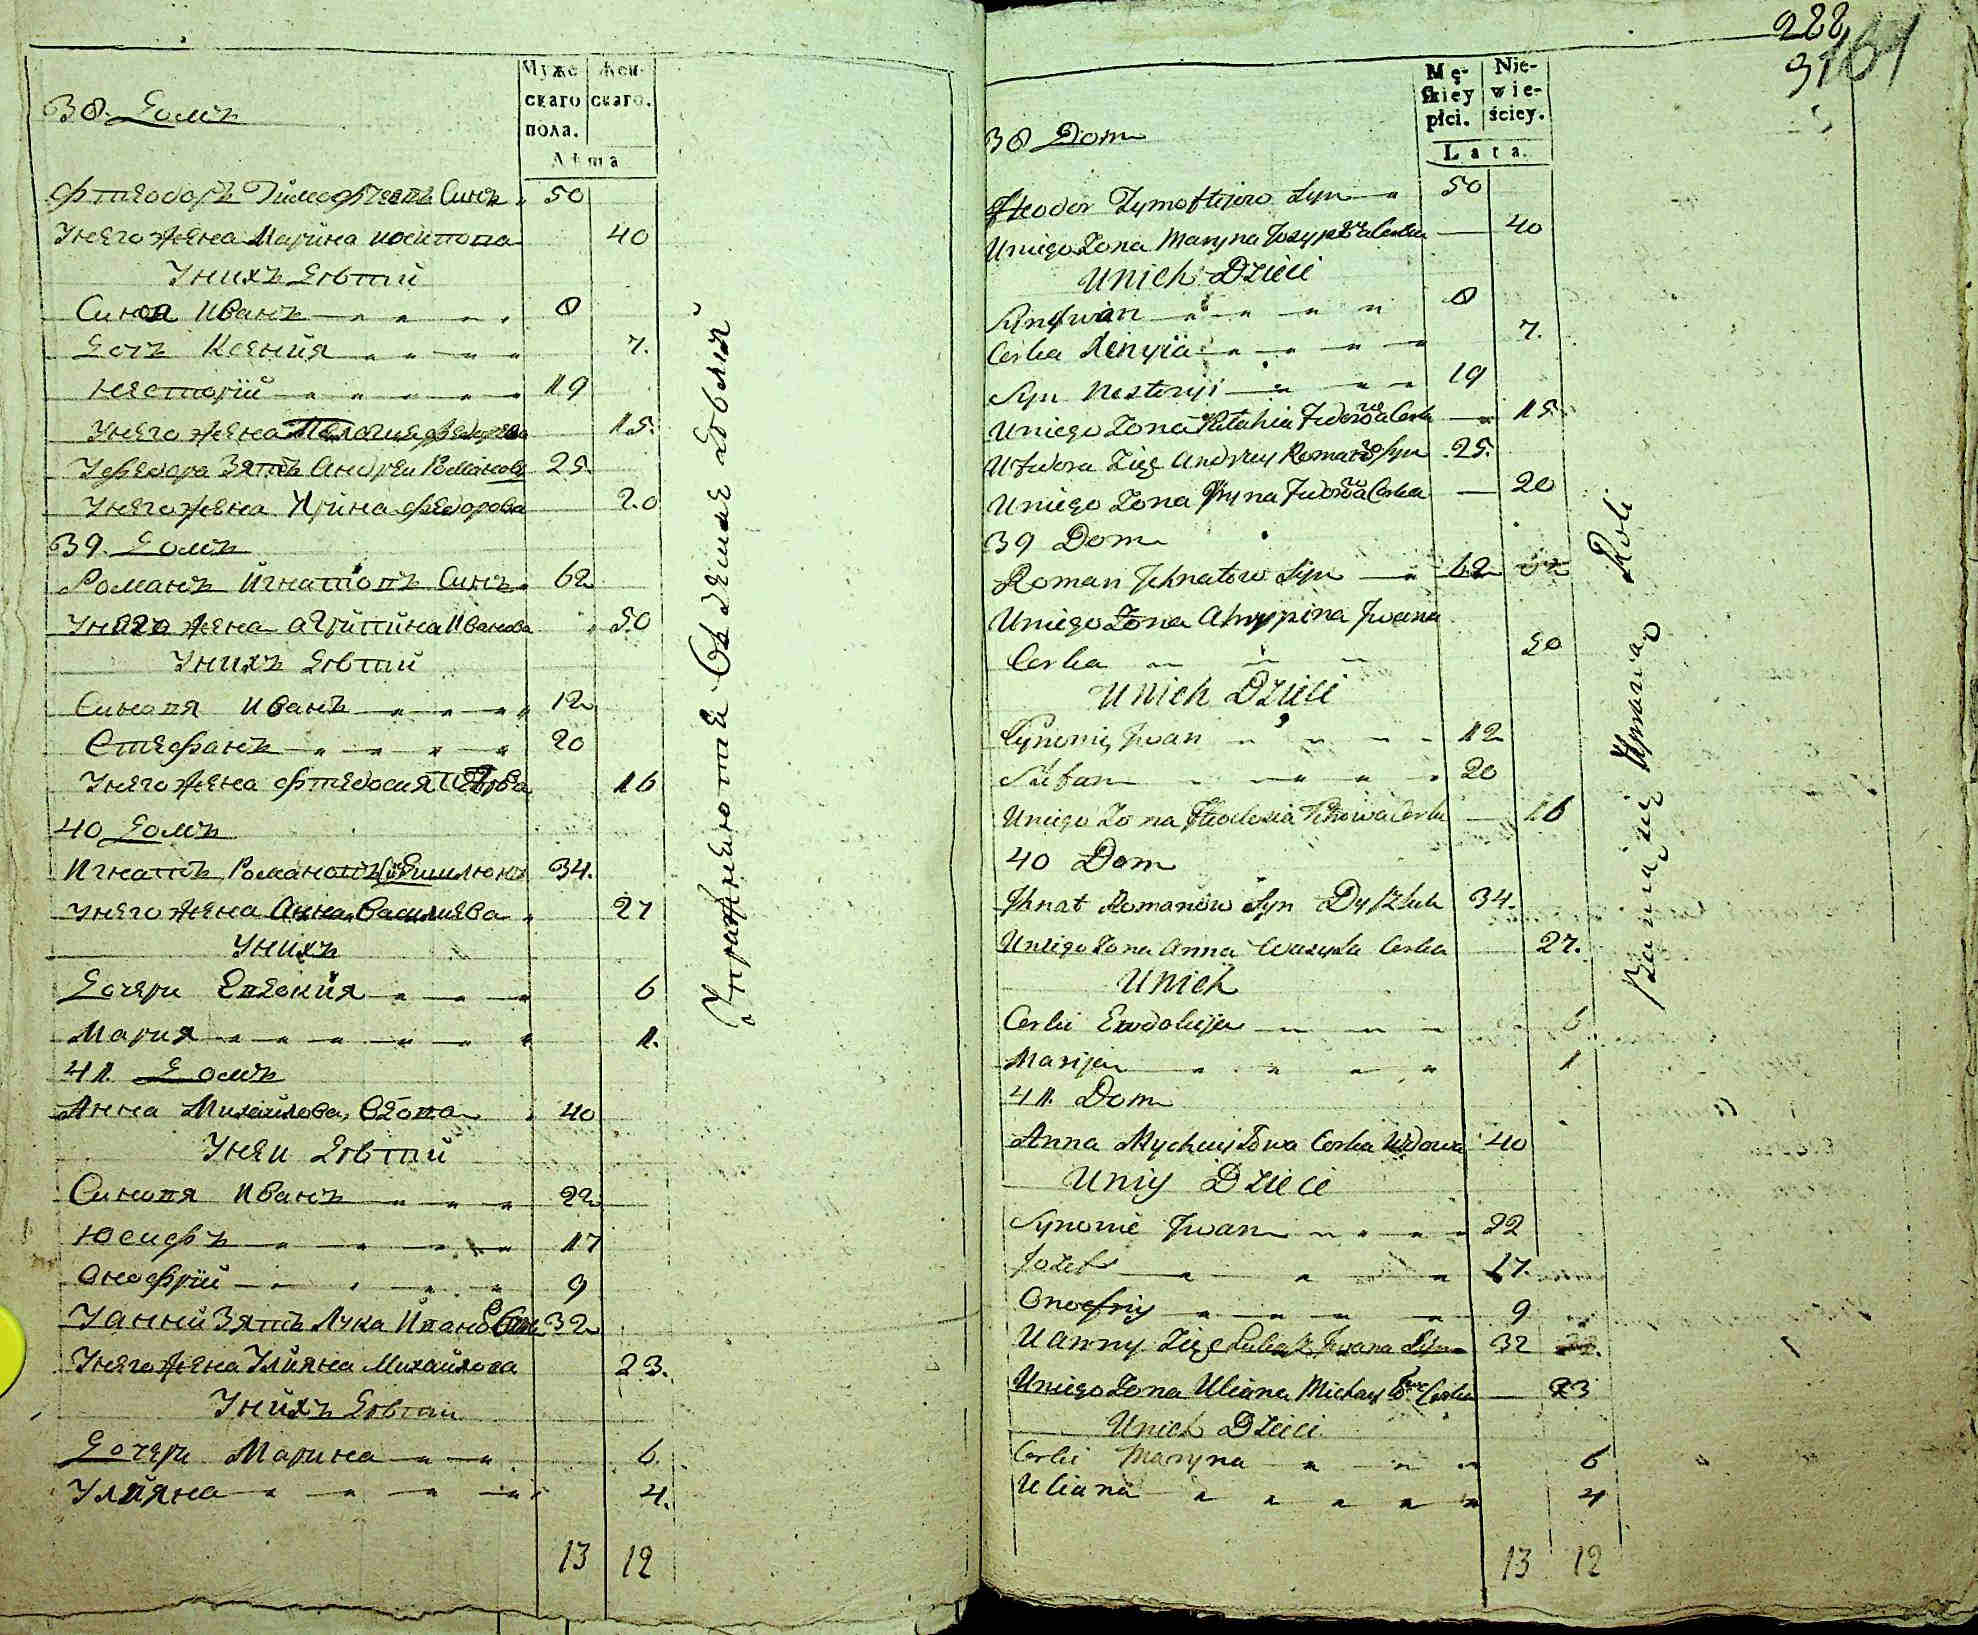 Муже
скаго
пола.
Жен-
скаго.
Лѣта
38. Домъ
Фтеодоръ Тимофтеевъ Синъ 50
Унего жена Марина 40
Унихъ Дѣтий
Синовя Иванъ 8
Дочь Ксения 7.
Несторий 19
Унего жена Пелагия Федорова 15.
Уфедора Зять Андрей Романовъ 25.
Унего жена Ирина Федорова 20
39. Домъ
Романъ Игнатовъ Синъ 62
Унего жена Агрипина Иванова 50
Унихъ Дѣтий
Синовя Иванъ 12
Стефанъ 20
Унего жена Фтеодосия Петрова 16
40 Домъ
Игнатъ Романовъ 34.
Унего жена Анна Василиева 27
Унихъ
Дочери Евдокия 6
Мария 1.
41. Домъ
Анна Михайлова, Вдова 40
Унеи Дѣтий
Синовя Иванъ 22
Юсифъ 17
Онофрий 9
Уанни Зять Лука Иванов Синъ 32
Унего жена Улияна Михайлова 23.
Унихъ Дѣтий
Дочери Марина 6.
Улияна 4.
13 12
Упражнеютце
288
31
161
Mę-
skiey
płci.
Nie-
wie-
ściey.
Lata.
38 Dom
Fteodor Tymoftejow Syn 50
Uniego Żona Maryna Cerka 40
Unich Dzieci
Syn Iwan 8
Cerka Xenyia 7.
Syn Nestoryi 19
Uniego Żona Pełahia Fedorowa Cerka 15
U Fedora Zięć Andrzey Romanów Syn 25.
Uniego Żona Iryna Fedorowa Cerka 20
39 Dom
Roman Ihnatow Syn 62
Uniego Żona Ahrypina Iwana
Cerka 50
Unich Dzieci
Synowie Iwan 12
Stefan 20
Uniego Żona Fteodosia Petrowa Cerka 16
40 Dom
Ihnat Romanów Syn 34.
Uniego Żona Anna Wasyla Cerka 27.
Unich
Cerki Ewdokija 6
Marija 1
41. Dom
Anna Mychayłowa Cerka Wdowa 40
Uniy Dzieci
Synowie Iwan 22
Jozef 17
Onofriy 9
U Anny Zięć Łukasz Iwana Syn 32
Uniego Żona Uliana Michayłowa Cerka 23
Unich Dzieci
Cerki Maryna 6
Uliana 4
13 12
Bawią się Uprawią Roli